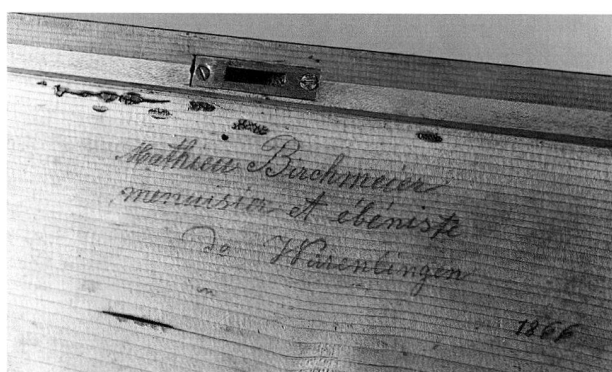 Mathieu Birchmeier
menuisier et ébéniste
de Würenlingen
1866